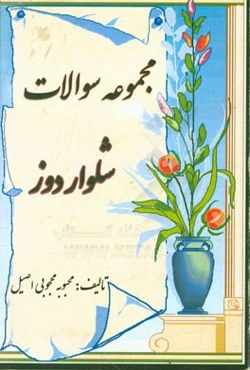 مجموعه سوالات
شلوار دوز
تالیف: محبوبه محجوبی اصیل